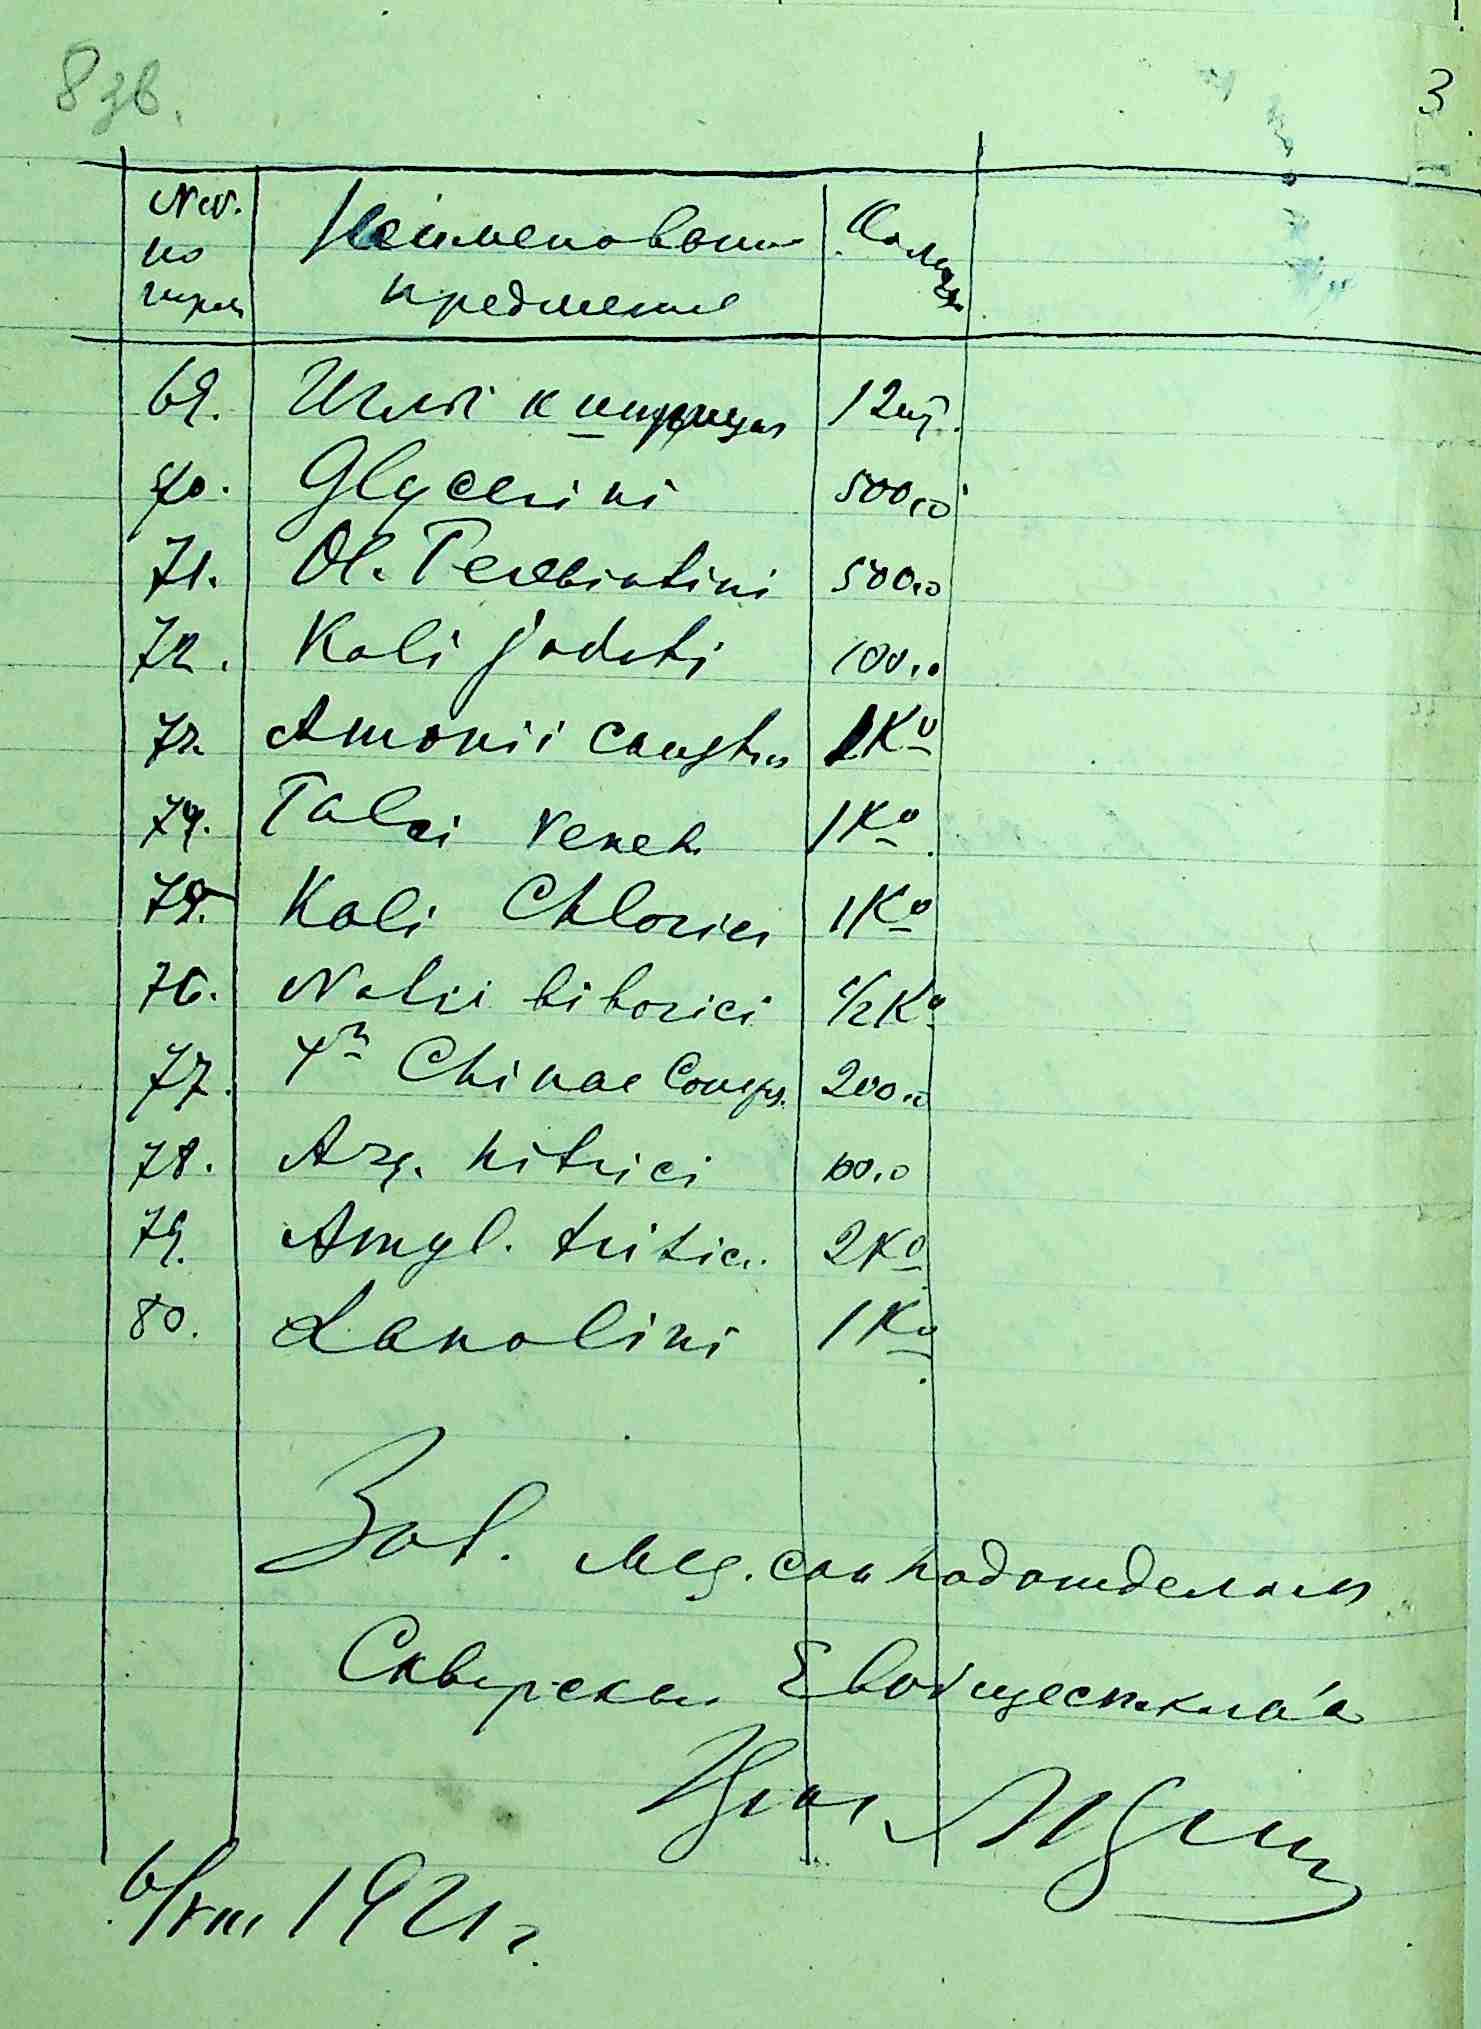 8 зв.
3
№№ по поряд.
Наименование предметов
Колич.
69. Иглы к шприцам 12 шт.
70. Glycerini 500,0
71. Ol. Terebintini 500,0
72. Kali jodati 100,0
73. Amonii caustici 1 Ко
74. Talci venet. 1 Ко
75. Kali Chlorici 1 Ко
76. Natri biborici 1/2 Ко
77. T-ra Chinae Comps. 200,0
78. Arg. nitrici 100,0
79. Amyl. tritici 2 Ко
80. Lanolini 1 Ко
Зав. мед. сан подотделом
Сквирского Евобщесткома
6/VIII 1921 г.